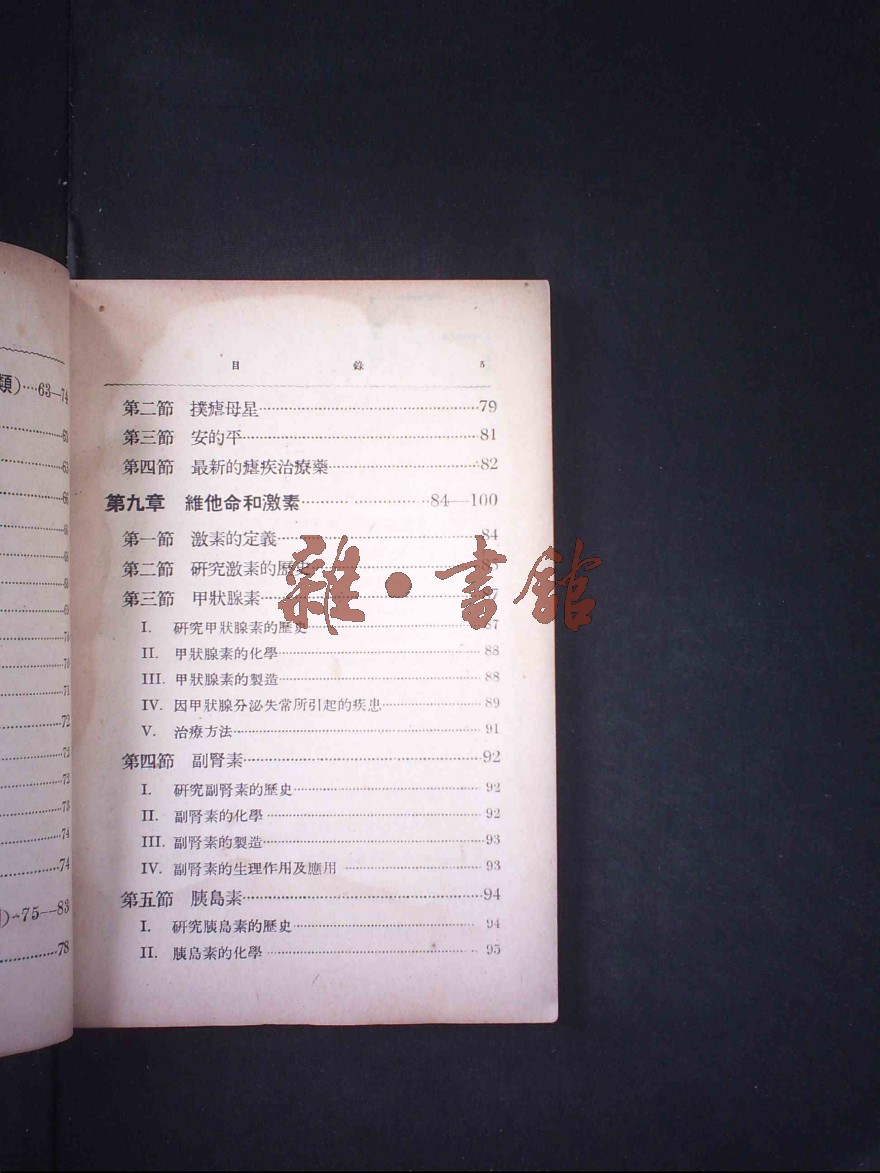 類)····63—74
63
63
66
68
68
68
69
70
70
71
72
72
72
73
74
74
75—83
78
目 錄 5
第二節 撲瘧母星 79
第三節 安的平 81
第四節 最新的瘧疾治療藥 82
第九章 維他命和激素 84—100
第一節 激素的定義 84
第二節 研究激素的歷史
第三節 甲狀腺素 87
I. 研究甲狀腺素的歷史 87
II. 甲狀腺素的化學 88
III. 甲狀腺素的製造 88
IV. 因甲狀腺分泌失常所引起的疾患 89
V. 治療方法 91
第四節 副腎素 92
I. 研究副腎素的歷史 92
II. 副腎素的化學 92
III. 副腎素的製造 93
IV. 副腎素的生理作用及應用 93
第五節 胰島素 94
I. 研究胰島素的歷史 94
II. 胰島素的化學 95
雜·書館